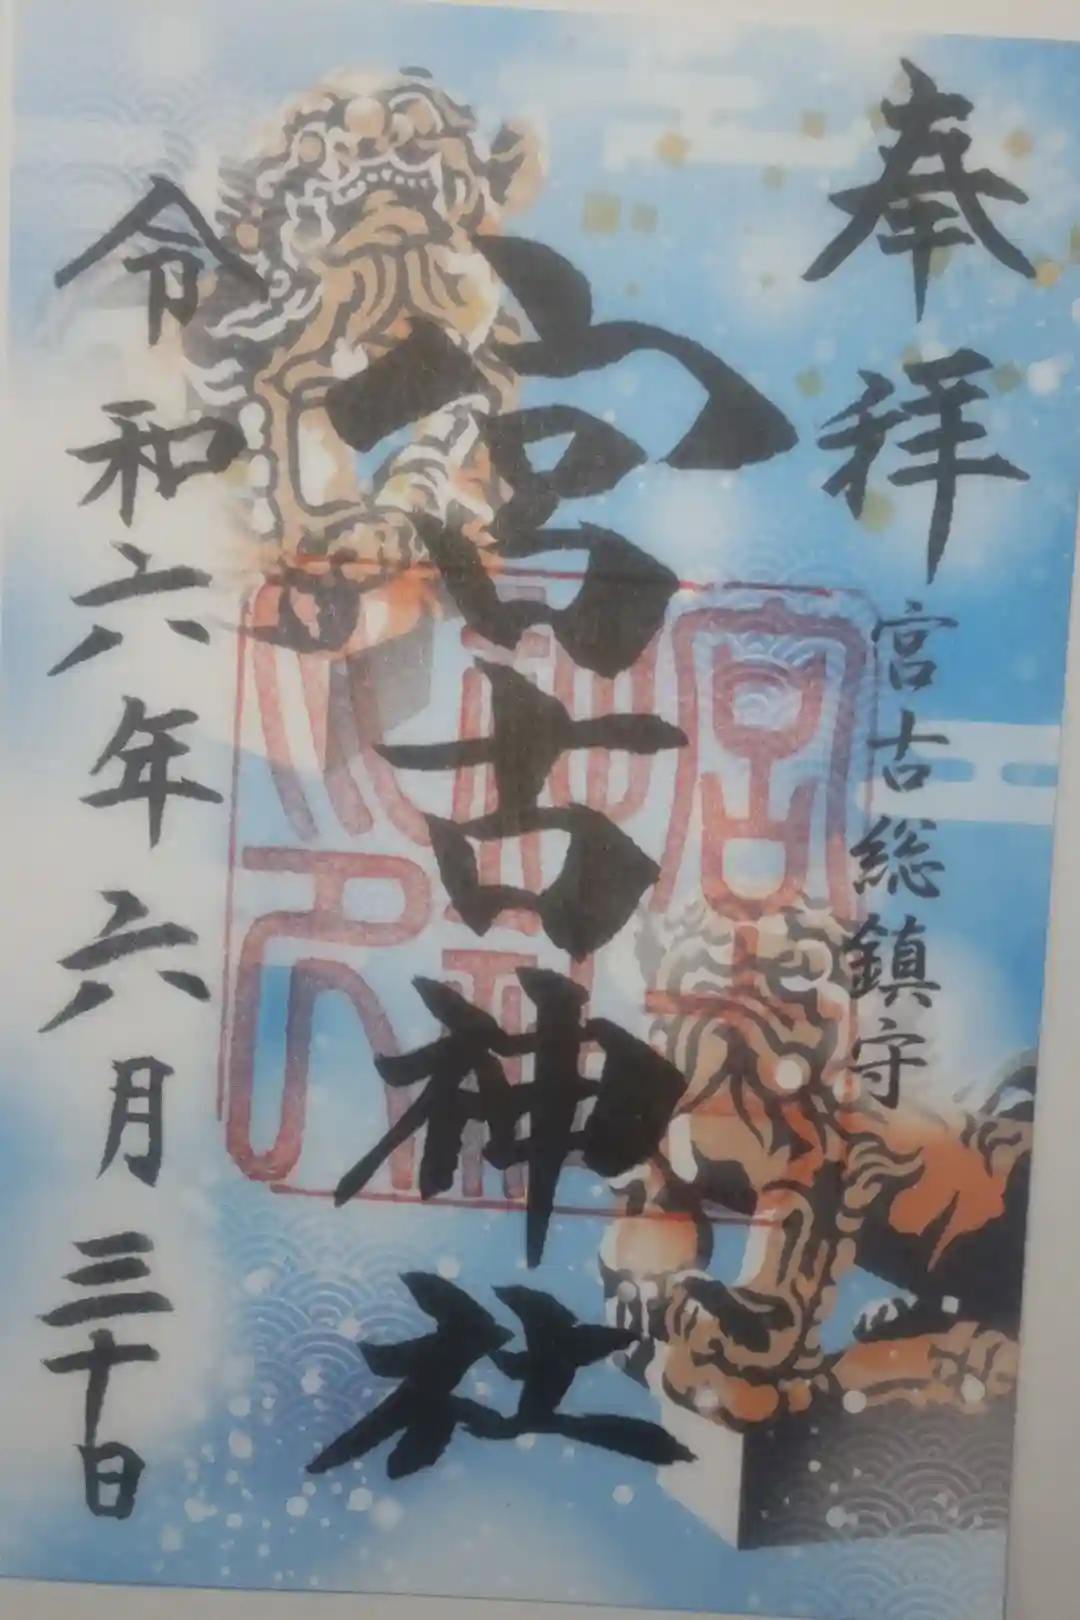 奉拝
宮古総鎮守
宮古神社
令和六年六月三十日